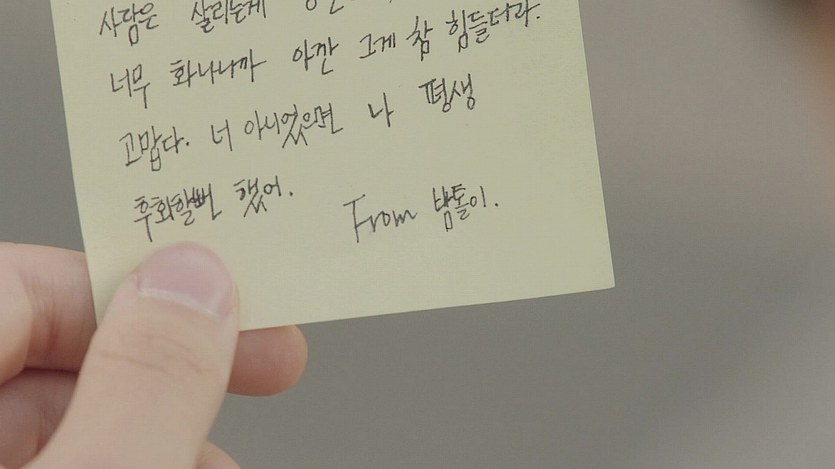 사람은 살리는게
너무 화나니까 아깐 그게 참 힘들더라.
고맙다. 너 아니었으면 나 평생
후회할뻔 했어.
From 밤톨이.